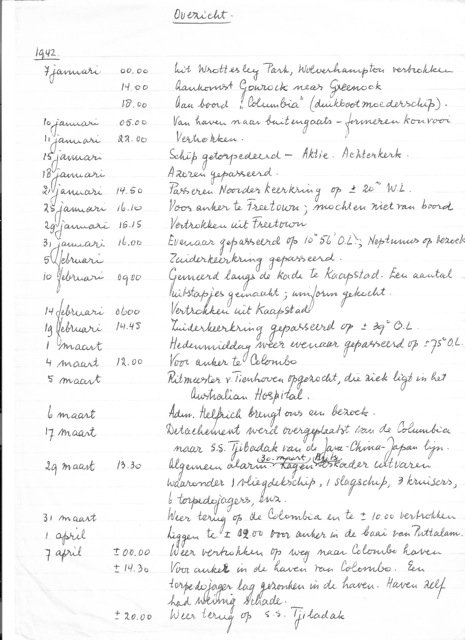 Overzicht.
1942.
7 januari 00.00 Uit Wrottesley Park, Wolverhampton vertrokken
14.00 Aankomst Gourock near Greenock
18.00 Aan boord "Columbia" (duikbootmoederschip).
10 januari 05.00 Van haven naar buitengaats - formeren konvooi
11 januari 22.00 Vertrokken.
15 januari Schip getorpedeerd - Aktie. Achterkerk.
18 januari Azoren gepasseerd.
21 januari 14.50 Passeren Noorderkeerkring op ± 20° W.L.
25 januari 16.10 Voor anker te Freetown; mochten niet van boord
29 januari 16.15 Vertrokken uit Freetown
31 januari 16.00 Evenaar gepasseerd op 10° 56' O.L.; Neptunus op bezoek
5 februari Zuiderkeerkring gepasseerd.
10 februari 09.00 Gemeerd langs de kade te Kaapstad. Een aantal
uitstapjes gemaakt; uniform gekocht.
14 februari 0600 Vertrokken uit Kaapstad
19 februari 14.45 Zuiderkeerkring gepasseerd op ± 39° O.L.
1 maart Hedenmiddag weer evenaar gepasseerd op ± 75° O.L.
4 maart 12.00 Voor anker te Colombo
5 maart Ritmeester v. Tienhoven opgezocht, die ziek ligt in het
Australian Hospital.
6 maart Adm. Helfrich brengt ons een bezoek.
17 maart Detachement werd overgeplaatst van de Columbia
naar S.S. Tjibadak van de Java-China-Japan lijn.
29 maart 13.30 Algemeen alarm. 30 maart uitvaren
waaronder 1 vliegdekschip, 1 slagschip, 3 kruisers,
6 torpedojagers, enz.
31 maart Weer terug op de Columbia en te ± 10.00 vertrokken
1 april Liggen te ± 09.00 voor anker in de baai van Puttalam.
7 april ± 00.00 Weer vertrokken op weg naar Colombo haven
± 14.30 Voor anker in de haven van Colombo. Een
torpedojager lag gezonken in de haven. Haven zelf
had weinig schade.
± 20.00 Weer terug op S.S. Tjibadak